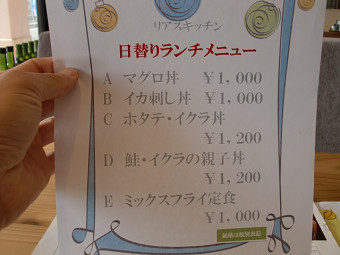 リアスキッチン
日替りランチメニュー
A マグロ丼 ￥1,000
B イカ刺し丼 ￥1,000
C ホタテ・イクラ丼
￥1,200
D 鮭・イクラの親子丼
￥1,200
E ミックスフライ定食
￥1,000